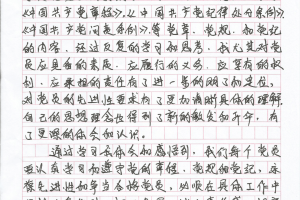 《中国共产党章程》、《中国共产党纪律处分条例》、
《中国共产党问责条例》等党章、党规、和党纪
的内容，经过反复的学习和思考，我尤其对党
员应具备的素质、应履行的义务、应享有的权
利、应承担的责任有了进一步的明了和定位，
对党员的先进性要求有了更加清晰具体的理解，
自己的思想理念也得到了新的教育和升华，有
了更深的体会和认识。
通过学习我体会和感悟到，我们每个党员
要认真学习和遵守党的章程，党规和党纪，永
葆先进性和争当合格党员，必须在具体工作中